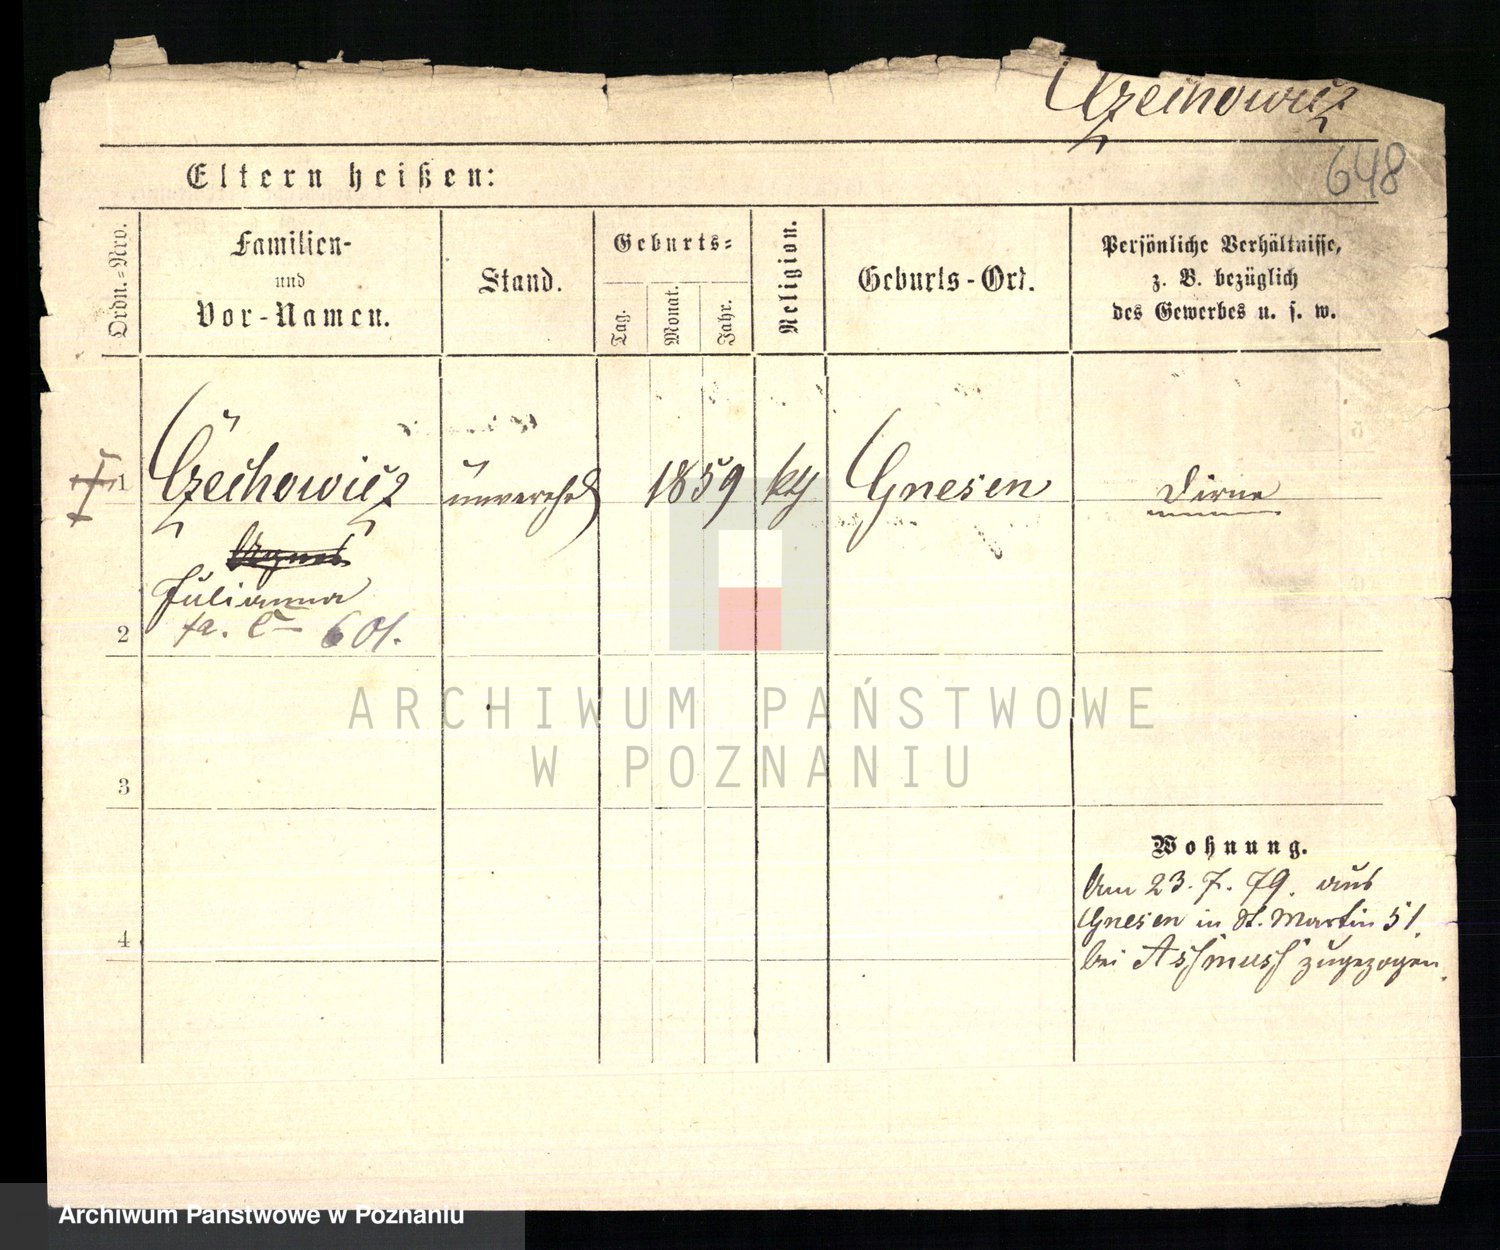 Czechowicz
648
Eltern heißen:
Ordn.-Nro.
Familien-
und
Vor-Namen.
Stand.
Geburts-
Tag.
Monat.
Jahr.
Religion.
Geburts-Ort.
Persönliche Verhältnisse,
z. B. bezüglich
des Gewerbes u. s. w.
1 Czechowicz unverehel 1859 kth Gnesen Dirne
Agnes
Julianna
2
601.
3
4
Wohnung.
Am 23. 7. 79. aus
Gnesen in St. Martin 51.
bei Assmuss zugezogen.
ARCHIWUM PAŃSTWOWE
W POZNANIU
Archiwum Państwowe w Poznaniu